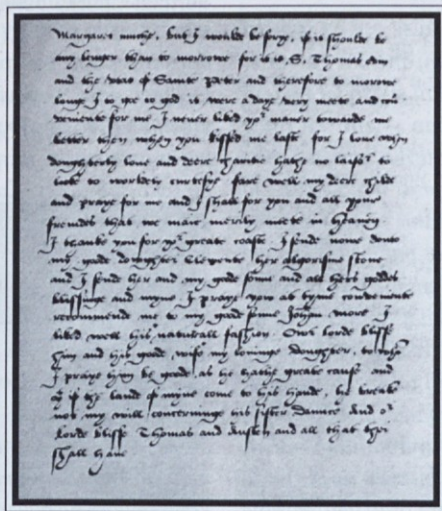 Margaret muche, but I woulde be sorye, if it shoulde be
any longer than to morrowe for it is S. Thomas even
and the vtas of Sainte Peter and therefore to morowe
longe I to goe to god it were a daye very meete and con
veniente for me I never liked yor maner towarde me
better then when you kissed me laste for I love when
doughterly love and deere charitie hathe no laisor to
loke to worldely curtesye fare well my deere childe
and praye for me and I shall for you and all youre
frendes that we maie merily meete in Heaven
I thanke you for yor greate coaste I sende nowe vnto
my gode doughter Clemente her algorisme stone
and I sende her and my gode sonne and all hers goddes
blissinge and myne I praye you at tyme conveniente
recommende me to my gode sonne John More I
liked well his naturall fashion Our lorde blisse
him and his gode wife my lovinge doughter, to whom
I praye him be gode, as he hathe greate cause and
yt if the lande of myne come to his hande, he breake
not my will concerninge his sister Daunce And or
lorde blisse Thomas and Austen and all that they
shall have